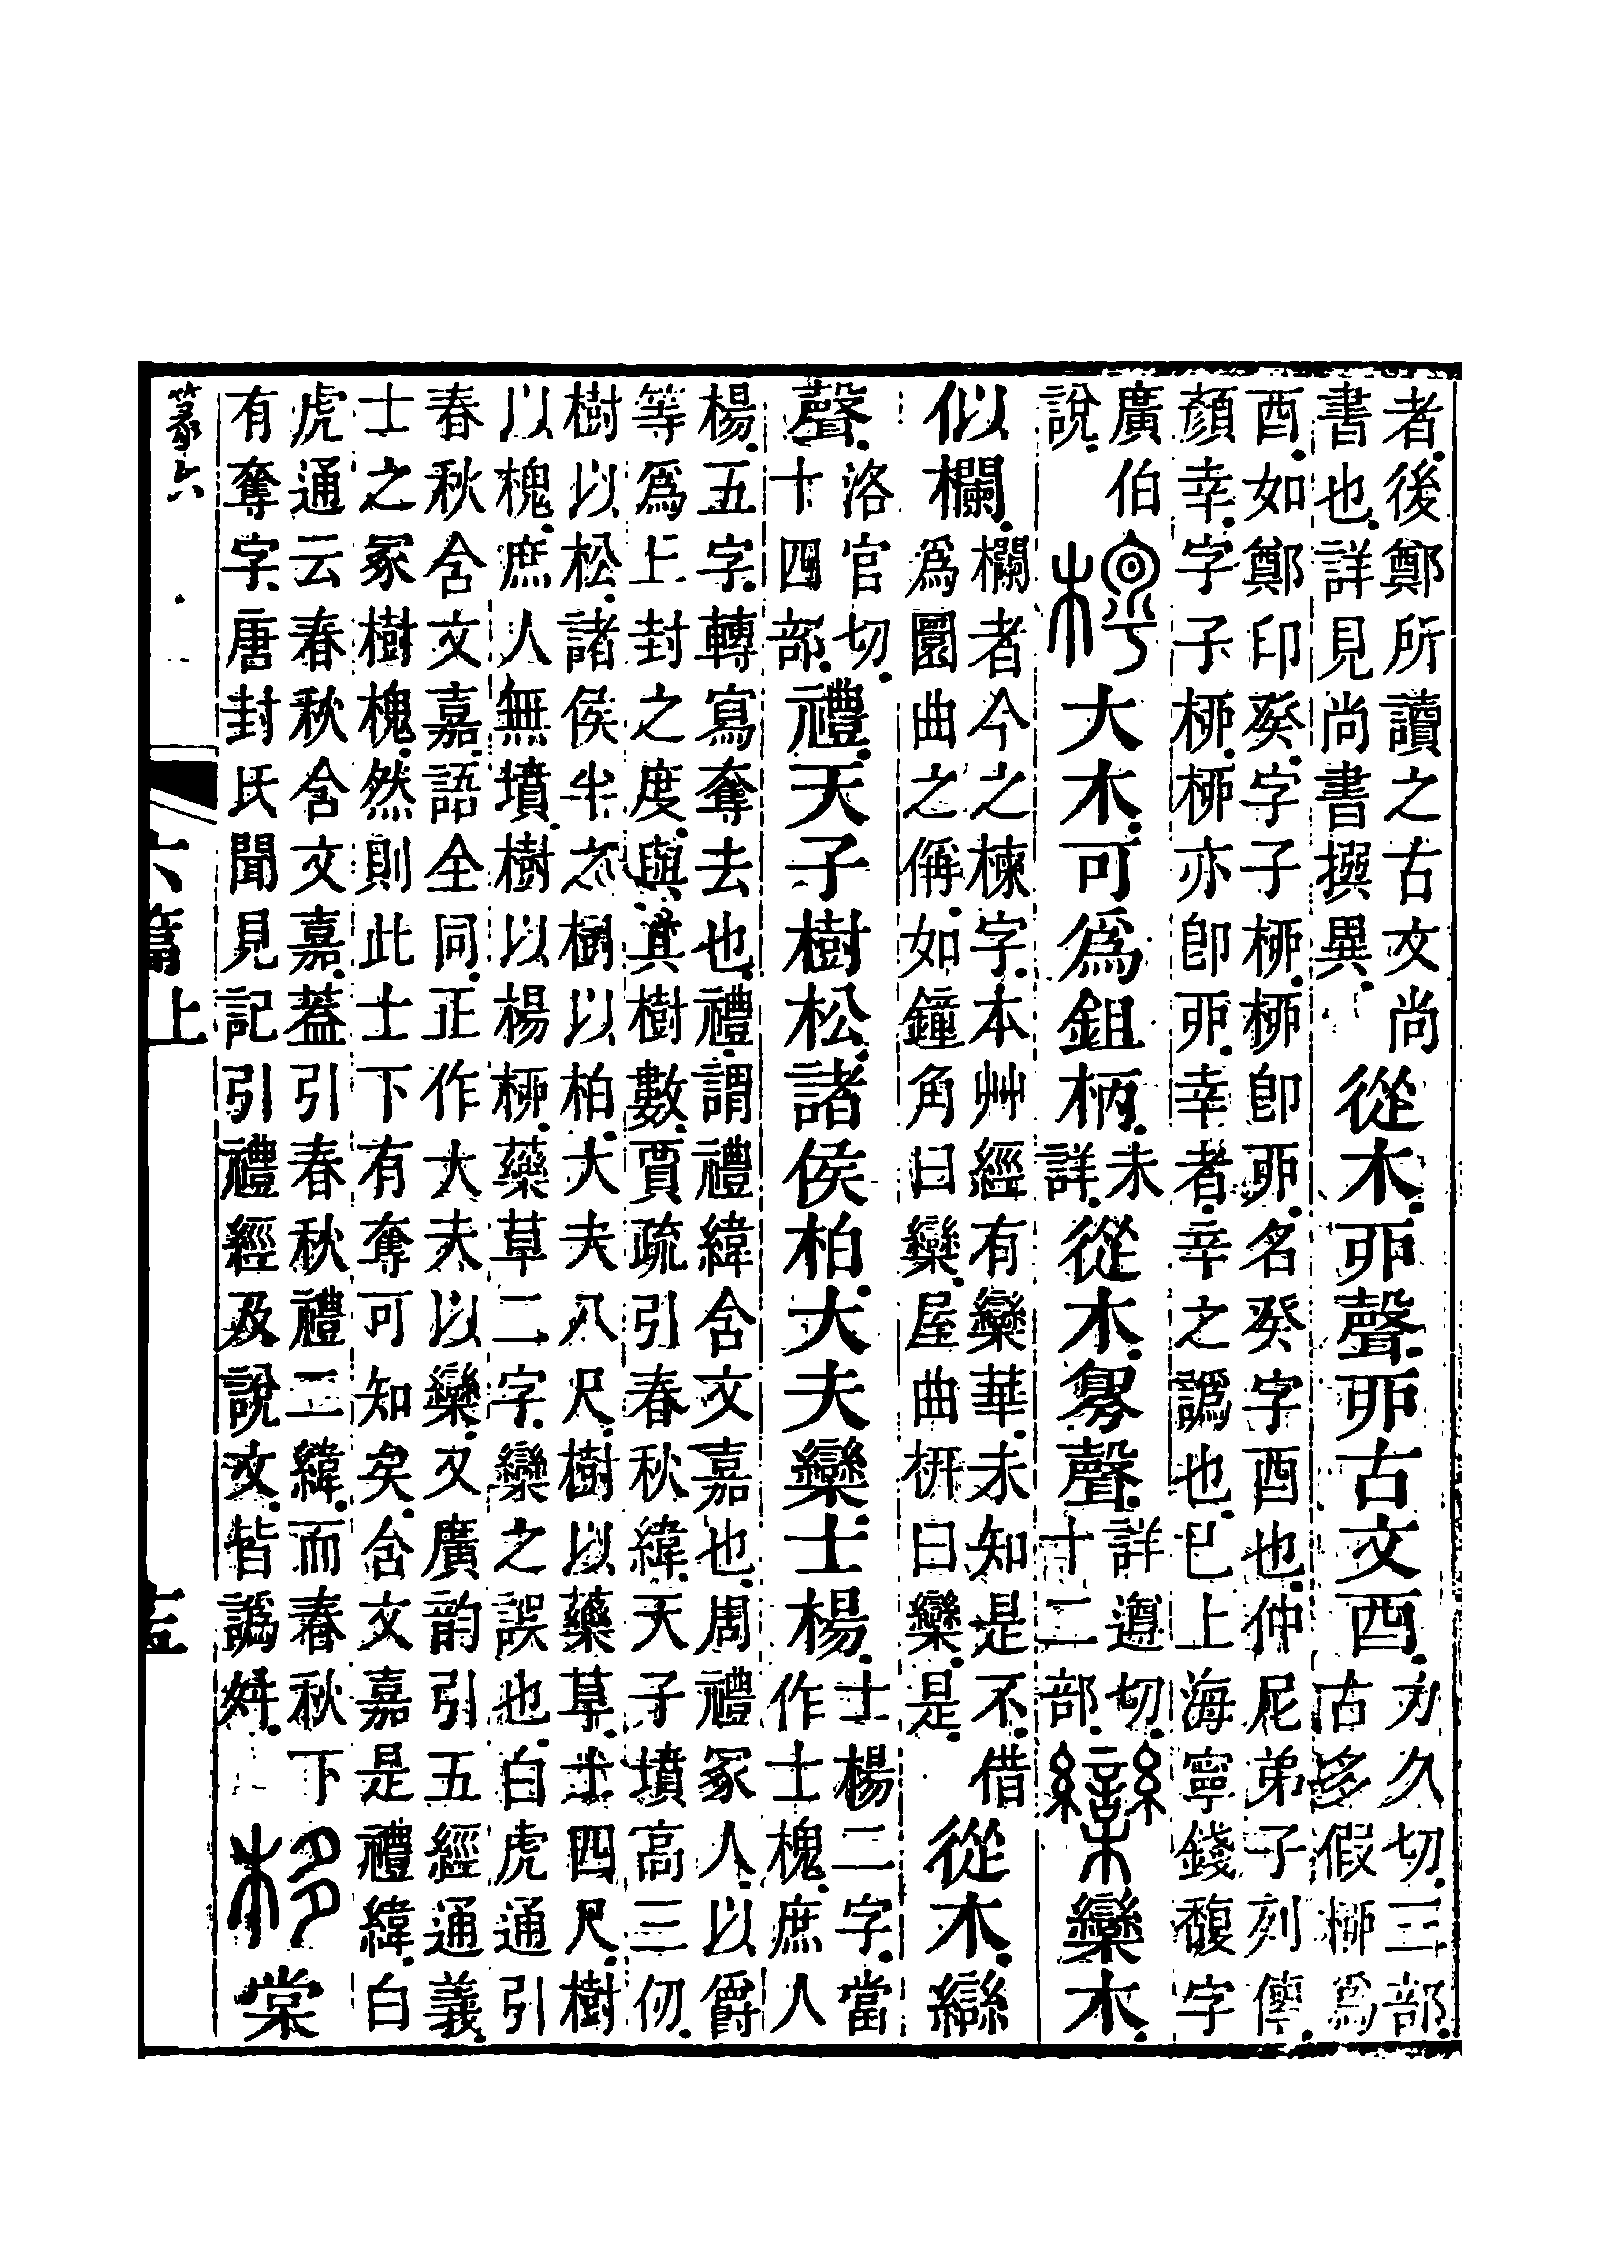 者。後鄭所讀之古文尚
書也。詳見尚書撰異。
從木。丣聲。丣古文酉。
力久切。三部。
古多假桺爲
酉。如鄭印癸。字子桺。桺卽丣。名癸字酉也。仲尼弟子列傳。
顏幸。字子桺。桺亦卽丣。幸者。辛之譌也。巳上海寧錢馥字
廣伯
說。
大木。可爲鉏柄。
未
詳。
從木。聲。
詳遵切。
十二部。
欒 欒木。
似欄。
欄者。今之楝字。本艸經有欒華。未知是不。借
爲圜曲之偁。如鐘角曰欒。屋曲枅曰欒。是。
從木。䜌
聲。
洛官切。
十四部。
禮。天子樹松。諸侯柏。大夫欒。士楊。
士楊二字。當
作士槐。庶人
楊。五字。轉寫奪去也。禮。謂禮緯含文嘉也。周禮冢人。以爵
等爲丘封之度。與其樹數。賈疏引春秋緯。天子墳高三仞。
樹以松。諸侯半之。樹以柏。大夫八尺。樹以藥草。士四尺。樹
以槐。庶人無墳。樹以楊桺。藥草二字。欒之誤也。白虎通引
春秋含文嘉。語全同。正作大夫以欒。又廣韵引五經通義。
士之冢樹槐。然則此士下有奪可知矣。含文嘉是禮緯。白
虎通云春秋含文嘉。蓋引春秋禮二緯。而春秋下
有奪字。唐封氏聞見記引禮經及說文。皆譌舛。
栘 棠
篆六
六篇上